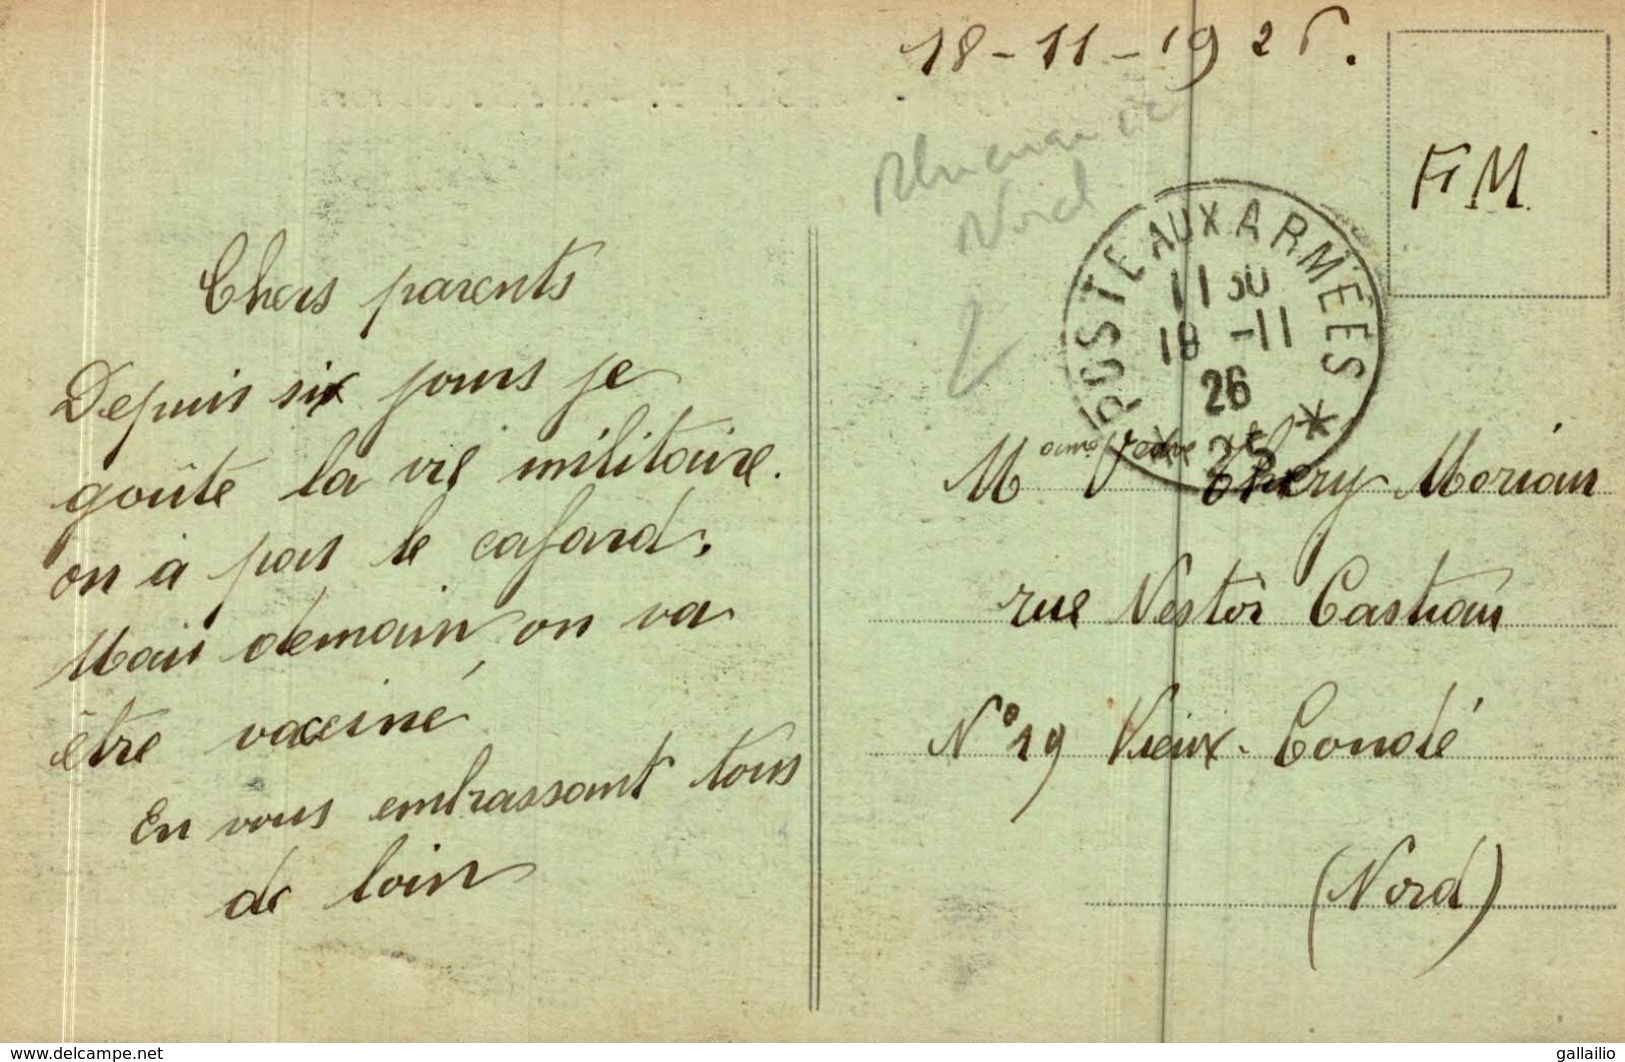 18-11-1926.
FM
Nord
POSTE AUX ARMÉES *
11 30
18 -11
26
Chers parents
Depuis six jours je
goûte la vie militaire.
on à pas le cafard.
Mais demain on va
être vacciné
En vous embrassant tous
de loin
Mame Veuve Théry Morian
rue Nestor Castiau
N° 19 Vieux-Condé
(Nord)
www.delcampe.net
gallailio